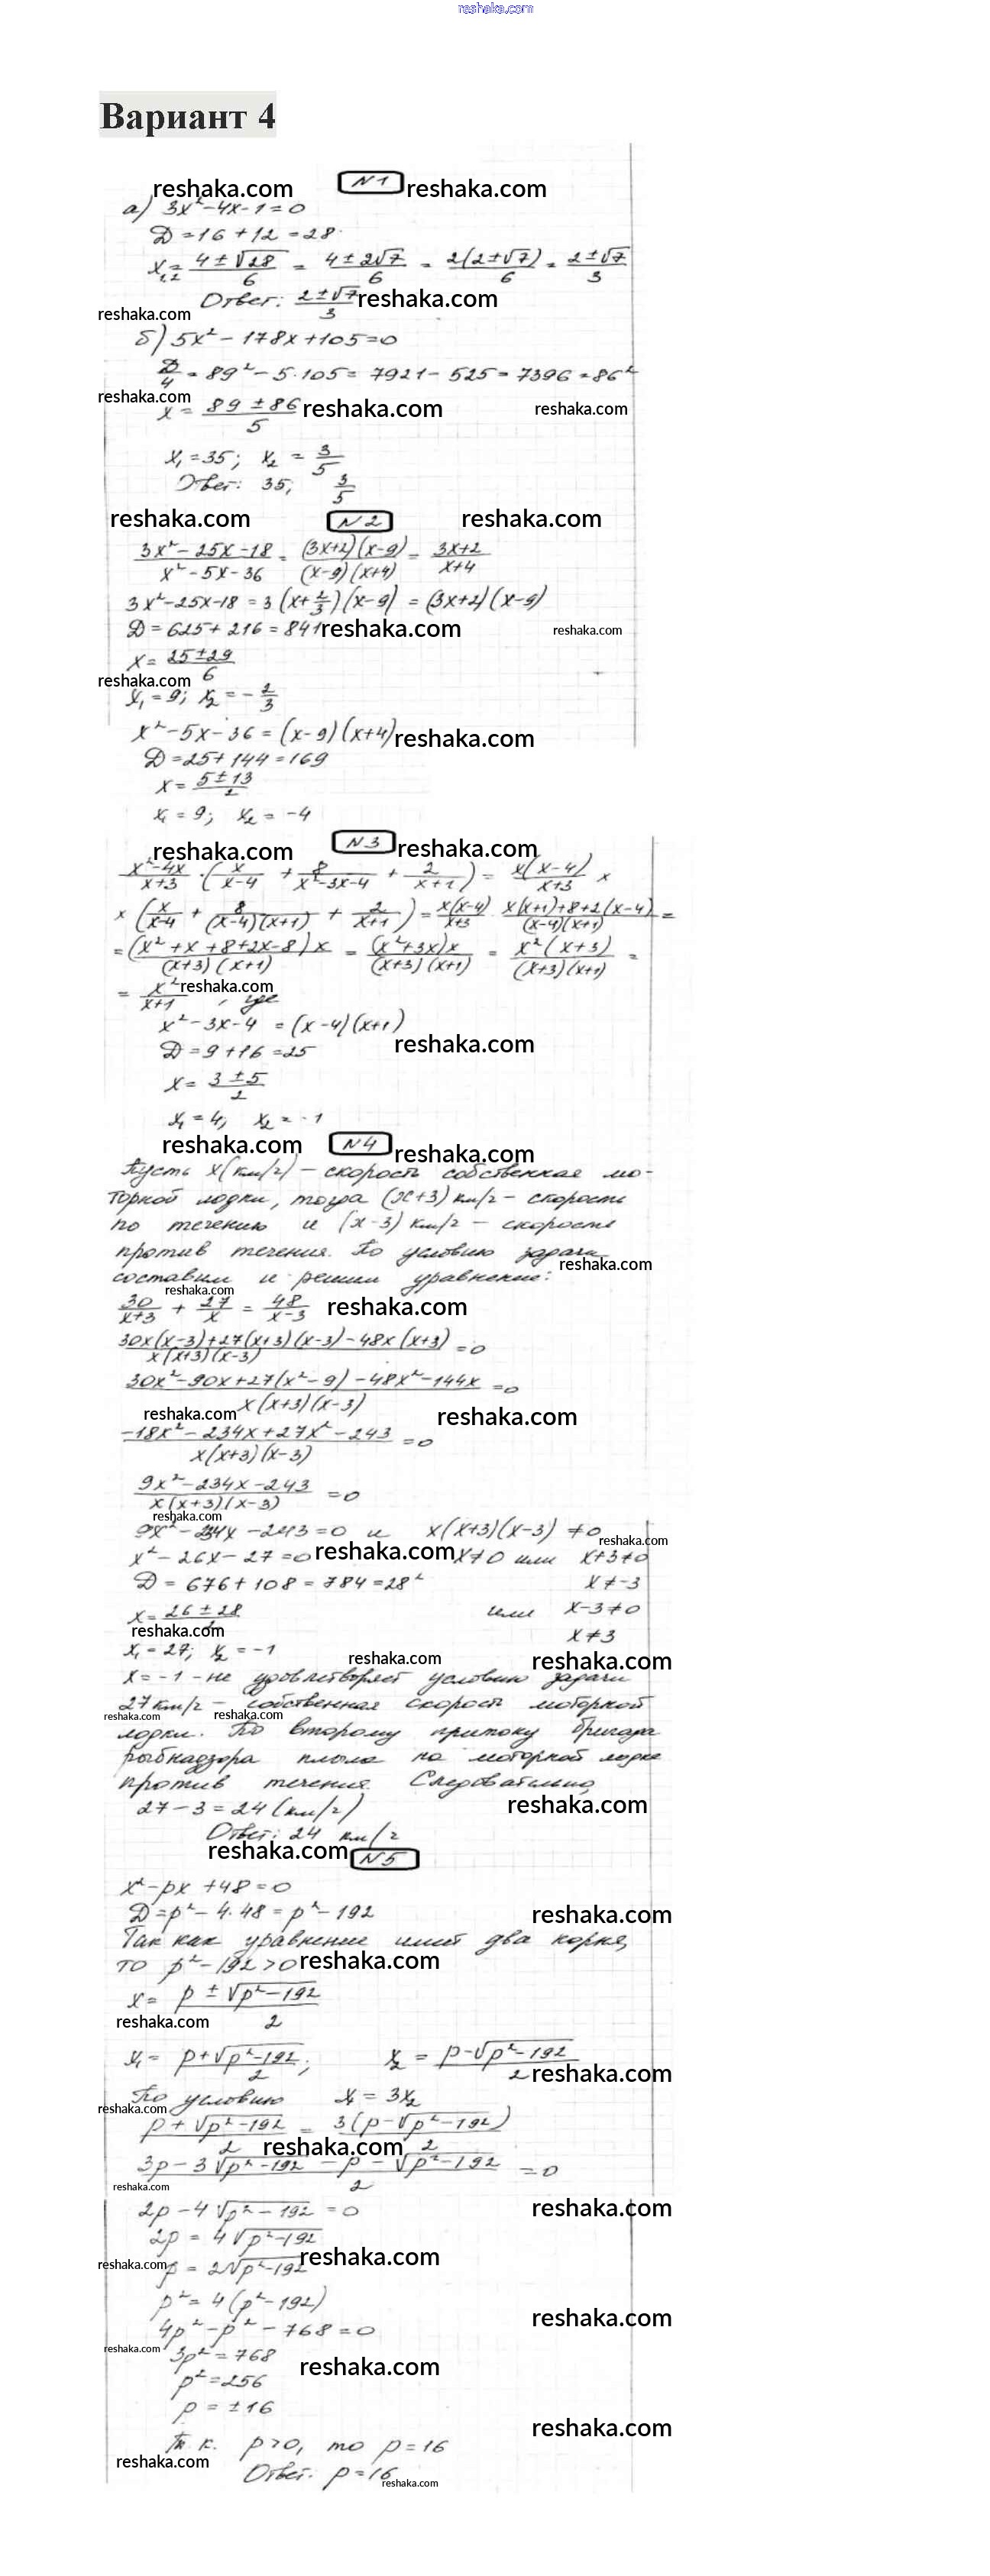 reshaka.com
Вариант 4
reshaka.com N1 reshaka.com
а) 3x²-4x-1=0
D=16+12=28
x₁,₂= (4±√28)/6 = (4±2√7)/6 = 2(2±√7)/6 = (2±√7)/3
Ответ: (2±√7)/3 reshaka.com
reshaka.com
б) 5x²-178x+105=0
D/4 = 89²-5·105= 7921-525=7396=86²
reshaka.com
x= (89±86)/5 reshaka.com reshaka.com
x₁=35; x₂= 3/5
Ответ: 35; 3/5
reshaka.com N2 reshaka.com
(3x²-25x-18)/(x²-5x-36) = (3x+2)(x-9)/(x-9)(x+4) = (3x+2)/(x+4)
3x²-25x-18=3(x+2/3)(x-9)=(3x+2)(x-9)
D=625+216=841 reshaka.com reshaka.com
x= (25±29)/6
reshaka.com
x₁=9; x₂=-2/3
x²-5x-36=(x-9)(x+4) reshaka.com
D=25+144=169
x= (5±13)/2
x₁=9; x₂=-4
reshaka.com N3 reshaka.com
(x²-4x)/(x+3) · (x/(x-4) + 8/(x²-3x-4) + 2/(x+1)) = x(x-4)/(x+3) ×
× (x/(x-4) + 8/((x-4)(x+1)) + 2/(x+1)) = x(x-4)/(x+3) · (x(x+1)+8+2(x-4))/((x-4)(x+1)) =
= (x²+x+8+2x-8)x/((x+3)(x+1)) = (x²+3x)x/((x+3)(x+1)) = x²(x+3)/((x+3)(x+1)) =
= x²/(x+1) reshaka.com, где
x²-3x-4=(x-4)(x+1)
D=9+16=25 reshaka.com
x= (3±5)/2
x₁=4; x₂=-1
reshaka.com N4 reshaka.com
Пусть x(км/ч) – скорость собственная мо-
торной лодки, тогда (x+3) км/ч – скорость
по течению и (x-3) км/ч – скорость
против течения. По условию задачи reshaka.com
составим и решим уравнение:
reshaka.com
30/(x+3) + 27/x = 48/(x-3) reshaka.com
(30x(x-3)+27(x+3)(x-3)-48x(x+3))/(x(x+3)(x-3)) =0
(30x²-90x+27(x²-9)-48x²-144x)/(x(x+3)(x-3)) =0
reshaka.com reshaka.com
(-18x²-234x+27x²-243)/(x(x+3)(x-3)) =0
(9x²-234x-243)/(x(x+3)(x-3)) =0
reshaka.com
9x²-234x-243=0 и x(x+3)(x-3)≠0
reshaka.com
x²-26x-27=0 reshaka.com x≠0 или x+3≠0
D=676+108=784=28² x≠-3
x= (26±28)/2 или x-3≠0
reshaka.com x≠3
x₁=27; x₂=-1 reshaka.com reshaka.com
x=-1 - не удовлетворяет условию задачи
27км/ч – собственная скорость моторной
reshaka.com reshaka.com
лодки. По второму притоку бригада
рыбнадзора плыла на моторной лодке
против течения. Следовательно,
27-3=24(км/ч) reshaka.com
Ответ: 24 км/ч
reshaka.com N5
x²-px+48=0
D=p²-4·48=p²-192 reshaka.com
Так как уравнение имеет два корня,
то p²-192>0 reshaka.com
x= (p±√(p²-192))/2
reshaka.com
x₁= (p+√(p²-192))/2; x₂= (p-√(p²-192))/2 reshaka.com
По условию x₁=3x₂
reshaka.com
(p+√(p²-192))/2 = 3(p-√(p²-192))/2
reshaka.com
(3p-3√(p²-192)-p-√(p²-192))/2 =0
reshaka.com
2p-4√(p²-192)=0 reshaka.com
2p=4√(p²-192)
reshaka.com p=2√(p²-192) reshaka.com
p²=4(p²-192)
4p²-p²-768=0 reshaka.com
reshaka.com 3p²=768
p²=256 reshaka.com
p=±16
reshaka.com
Т.к. p>0, то p=16
reshaka.com
Ответ: p=16 reshaka.com